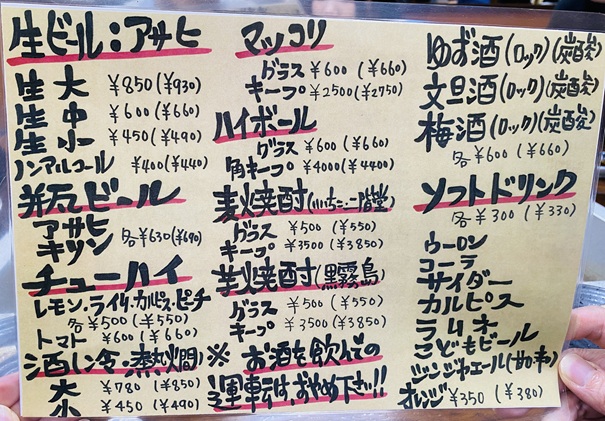 生ビール:アサヒ
生大 ¥850(¥930)
生中 ¥600(¥660)
生小 ¥450(¥490)
ノンアルコール ¥400(¥440)
瓶ビール
アサヒ
キリン 各¥630(¥690)
チューハイ
レモン・ライム・カルピス・ピーチ
各¥500(¥550)
トマト ¥600(¥660)
酒(冷・熱燗)
大 ¥780(¥850)
小 ¥450(¥490)
マッコリ
グラス ¥600(¥660)
キープ ¥2500(¥2750)
ハイボール
グラス ¥600(¥660)
角キープ ¥4000(¥4400)
麦焼酎(いいちこ・二階堂)
グラス ¥500(¥550)
キープ ¥3500(¥3850)
芋焼酎(黒霧島)
グラス ¥500(¥550)
キープ ¥3500(¥3850)
※お酒を飲んでの
運転は、おやめ下さい!!
ゆず酒(ロック)(炭酸)
文旦酒(ロック)(炭酸)
梅酒(ロック)(炭酸)
各¥600(¥660)
ソフトドリンク
各¥300(¥330)
ウーロン
コーラ
サイダー
カルピス
ラムネ
こどもビール
ジンジャエール(甘・辛)
オレンジ ¥350(¥380)